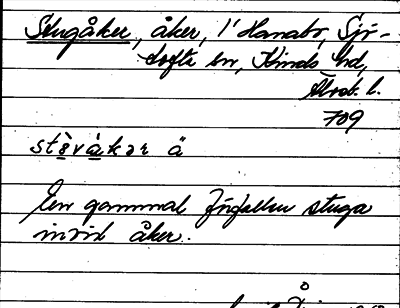 Stugåker, åker, 1/1 Hanabo, Sjö-
tofta sn, Kinds hd,
Älvsb. l.
709
stèvåkər ä
En gammal förfallen stuga
invid åker.